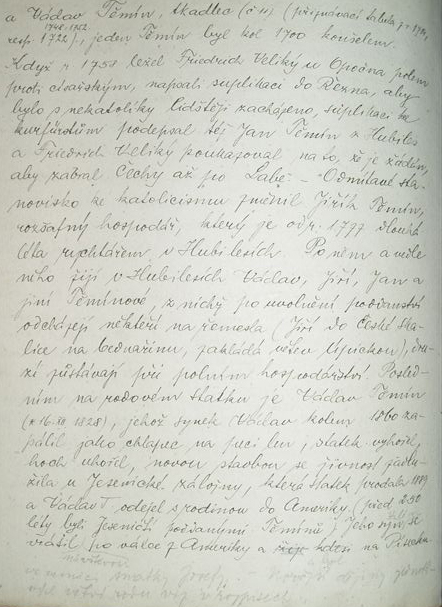 a Václav Těmín, tkadlec (č. 11) (přiznávací tabela z r. 1714,
resp. 1722), jeden Těmín byl kol 1700 konšelem.
Když r. 1758 ležel Friedrich Veliký u Opočna polem
proti císařským, napsali suplikaci do Řezna, aby
bylo s nekatolíky lidštěji zacházeno, suplikaci ke
kurfürstům podepsal též Jan Těmín z Hubiles
a Friedrich Veliký poukazoval na to, že je žádán,
aby zabral Čechy až po Labe. - Odmítavé sta-
novisko ke katolicismu změnil Jiřík Těmín,
rozšafný hospodář, který je od r. 1777 dlouhá
léta rychtářem v Hubilesích. Po něm a vedle
něho žijí v Hubilesích Václav, Jiří, Jan a
jiní Těmínové, z nichž po uvolnění poddanství
odcházejí někteří na řemesla (Jiří do České Ska-
lice na bednařinu, zakládá větev Úpickou), dru-
zí zůstávají při polním hospodářství. Posled-
ním na rodovém statku je Václav Těmín
(n 16. XI 1828), jehož synek Václav kolem 1860 za-
pálil jako chlapec na peci len, statek vyhořel,
hoch uhořel, novou stavbou se živnost zadlu-
žila u Jesenické záložny, která statek prodala 1889
a Václav T odejel s rodinou do Ameriky (před 250
lety byli Jeseničtí poddanými Těmínů). Jeho syn se
vrátil po válce z Ameriky a žije kdesi na Písecku